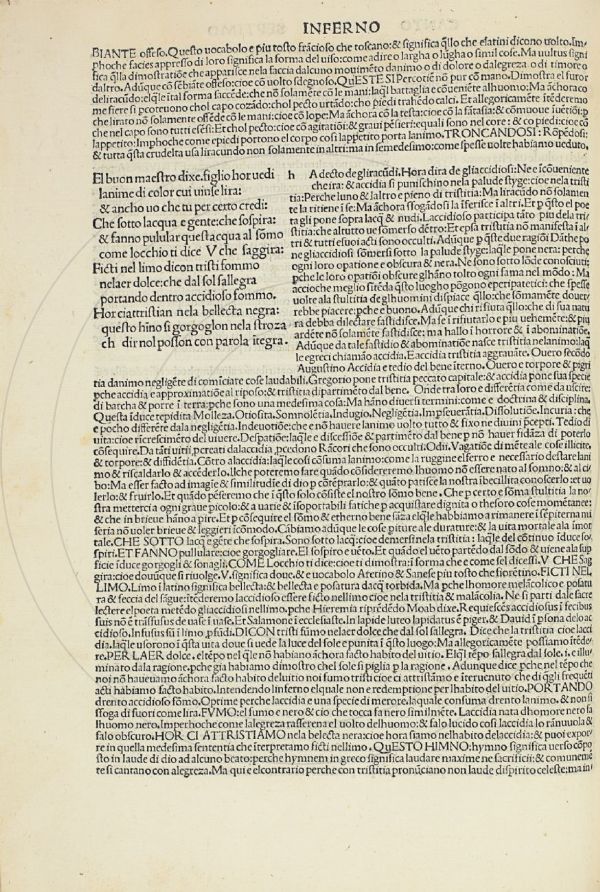 INFERNO
BIANTE offeso. Questo vocabolo e piu tosto frācioso che toscano: & significa q̄llo che elatini dicono uolto. Im-
phoche facies appresso di loro significa la forma del uiso: come adire o largha o lugha o simil cose. Ma uultus signi
fica q̄lla dimostratiōe che apparisce nela faccia dalcuno mouimēto danimo o di dolore o dalegreza. o di timore o
daltro. Adūque cō sēbiāte offeso: cioe cō uolto sdegnoso. QuESTE SI Percotiē nō pur cō mano. Dimostra el furor
deliracūdo: elqle ital forma saccēde: che nō solamēte cō le mani: laql battaglia e cōueniēte alhuomo: Ma āchora co
me fiere si pcoteuono chol capo cozādo: chol pecto urtādo: cho piedi trahēdo calci. Et allegoricamēte itēderemo
che lirato nō solamente offēde cō le mani: cioe cō lope: Ma āchora cō la testa: cioe cō la fātasia: & cōmuoue luētiōi: p
che nel capo sono tutti esēsi: Et chol pecto: cioe cō agitatiōi & graui pēsieri: equali sono nel core: & co piedi: cioe cō
lappetito: Imphoche come epiedi portono el corpo cosi lappetito porta lanimo. TRONCANDOSI: Rōpēdosi:
& tutta q̄sta crudelta usa liracundo non solamente in altri: ma in semedesimo: come spesse uolte habbiamo ueduto.
El buon maestro dixe. figlio hor uedi
lanime di color cui uinse lira:
& ancho uo che tu per certo credi:
Che sotto lacqua e gente: che sospira:
& fanno pulular questa acqua al sōmo
come locchio ti dice V che saggira:
Ficti nel limo dicon tristi fommo
nelaer dolce: che dal sol sallegra
portando dentro accidioso fommo.
Hor ci attristian nela bellecta negra:
questo hino si gorgoglon nela stroza
ch dir nol posson con parola itegra.
h A decto de gliracūdi. Hora dira de gliaccidiosi: Ne īconue
che ira: & accidia si punischino nela palude styge: cioe nela tristi
tia: Perche luno & laltro e pieno di tristitia: Ma liracūdo nō solamē
te la ritiene ī se: Ma āchora sfogādosi la īferisce ī altri. Et p q̄sto el poe
ta gli pone sopra lacq & nudi. Laccidioso participa tāto piu dela tri
stitia: che altutto ue sōmerso dētro: Et epsa tristitia nō manifesta ī al
tri & tutti esuoi acti sono occulti. Adūque p q̄ste due ragiōi Dāthe po
ne gliaccidiosi sōmersi sotto la palude styge: laqle pone nera: perche
ogni loro opatione e obscura & nera. Ne sono sotto lōde conosciuti:
pche le loro opatiōi obscure glhāno tolto ogni fama nel mōdo: Ma
accioche meglio sitēda q̄sto luogho pōgono eperipatetici: che spesse
uolte ala stultitia de glhuomini dispiace q̄llo: che sōmamēte douer-
rebbe piacere: pche e buono. Adūque chi rifiuta q̄llo: che di sua natu
ra debba dilectare fastidisce. Ma se ī rifiutarlo e piu uehemēte: & piu
ardēte nō solamēte fastidisce: ma hallo ī horrore & ī abominatiōe.
Adunque da tale fastidio & abominatiōe nasce tristitia nelanimo: laq
le egreci chiamão accidia. Eaccidia tristitia aggrauāte. Ouero secōdo
Augustino Accidia e tedio del bene iterno. Ouero e torpore & pigri
tia danimo negligēte di comīciare cose laudabili. Gregorio pone tristitia peccato capitale: & accidia pone sua specie
pche accidia e approximatiōe al riposo: & tristitia di partimēto dal bene. Onde tra loro e differētia come da uscire:
di barcha & porre ī terra: pche sono una medesima cosa: Ma hāno diuersi termini: come e doctrina & disciplina.
Questa īduce tepidita Molleza. Otiosita. Somnolētia. Indugio. Negligētia. Impseuerātia. Dissolutiōe. Incuria: che
e pocho differēte dala negligētia. Indeuotiōe: che e nō hauere lanimo uolto tutto & fixo ne diuini p̄cepti. Tedio di
uita: cioe ricrescimēto del uiuere. Despatiōe: laqle e discessiōe & partimēto dal bene p nō hauer fidāza di poterlo
cōsequire. Da tāti uitii, pcreati dalaccidia, pcedono Rācori che sono occulti Odii. Vagatiōe di mēte ale cose illicite.
& torpore: & diffidētia. Cōtro alaccidia: laqle cosi cōsuma lanimo: come la ruggine el ferro e necessario destare lani
mo & riscaldarlo & accēderlo. Ilche poteremo fare quādo cōsidereremo Lhuomo nō essere nato al somno: & al ci
bo: Ma esser facto ad imagīe & similitudīe di dio p cōtēprarlo: & quāto patisce la nostra ībecillita conoscerlo: et uo
lerlo: & fruirlo. Et quādo pēseremo che ī q̄sto solo cōsiste el nostro sōmo bene. Che p certo e soma stultitia la no-
stra metterci a ogni graue picolo: & a uarie & īsoportabili fatiche p acquistare dignita o thesoro cose momētanee:
& che in brieue hāno a pire. Et p cōsequire el sōmo & etherno bene saza elqle habbiamo a rimanere ī sepiterna mi
seria nō uoler brieue & leggieri īcōmodo. Cabiamo adūque le cose piture ale durature: & la uita mortale ala īmor
tale. CHE SOTTO lacq e gēte che sospira. Sono sotto lacq: cioe demersi nela tristitia: laqle del cōtinuo īduce so-
spiri. ET FANNO pullulare: cioe gorgogliare. El sospiro e uēto. Et quādo el uēto partēdo dal fōdo & uiene ala sup
ficie īduce gorgogli & sonagli. COME Locchio ti dice: cioe ti dimostra ī forma che e come sel dicessi. V CHE Sag
gira: cioe douūque si riuolge. V. significa doue. & e uocabolo Aretino & Sanese piu tosto che fiorētino. FICTI NEL
LIMO. Limo ī latino significa bellecta: & bellecta e posatura dacq torbida. Ma pche lhomore melācolico e posatu
ra & feccia del sāgue: itēderemo laccidioso essere ficto nellimo cioe nela tristitia & malācolia. Ne si parti dale sacre
lectere el poeta metēdo gliaccidiosi nellimo. pche Hieremia ripr̄edēdo Moab dixe. Requiescēs accidiosus ī fecibus
suis nō ē trāsfusus de uase ī uase. Et Salamone ī ecclesiaste. In lapide luteo lapidatus ē piger. & Dauid ī psona delo ac
cidioso. Infusus sū ī limo, pfūdi. DICON tristi fūmo nelaer dolce che dal sol sallegra. Dice che la tristitia cioe lacci
dia. laqle usorono ī q̄sta uita doue si uede la luce del sole e punita ī q̄sto luogo: Ma allegoricamēte possiamo itēde-
re. PER LAER dolce. el tēpo nel qle nō habbiamo āchora facto habito del uitio. Elql tēpo sallegra dal sole. i. e illu-
minato dala ragione. pche gia habiamo dimostro chel sole si piglia p la ragione. Adunque dice pche nel tēpo che
noi nō haueuamo āchora facto habito del uitio noi fumo tristi cioe ci attristāmo e iteruenuto che di q̄gli frequēti
acti habiāmo facto habito. Intendendo linferno elquale non e redemptione per lhabito del uitio. PORTANDO
drento accidioso sōmo. Optime perche laccidia e una specie di merore, laquale consuma drento lanimo. & non si
sfoga di fuori come lira. FVMO: el fumo e nero & cio che tocca fa nero similmēte. Laccidia nata dhomore nero fa
lhuomo nero. Imperhoche come alegreza rasserena el uolto delhuomo: & falo lucido cosi laccidia lo rānuuola &
falo obscuro. HOR CI ATTRISTIAMO nela belecta nera: cioe hora siamo nelhabito delaccidia: & puoi expor
re in quella medesima sententia che iterpretamo ficti nellimo. QuESTO HIMNO: hymno significa uerso cōpo
sto in laude di dio ad alcuno beato: perche hymnem in greco significa laudare maxime ne sacrificii: & comunemē
te si cantano con alegreza. Ma qui e elcontrario perche con tristitia pronūciano non laude dispirito celeste: ma in/